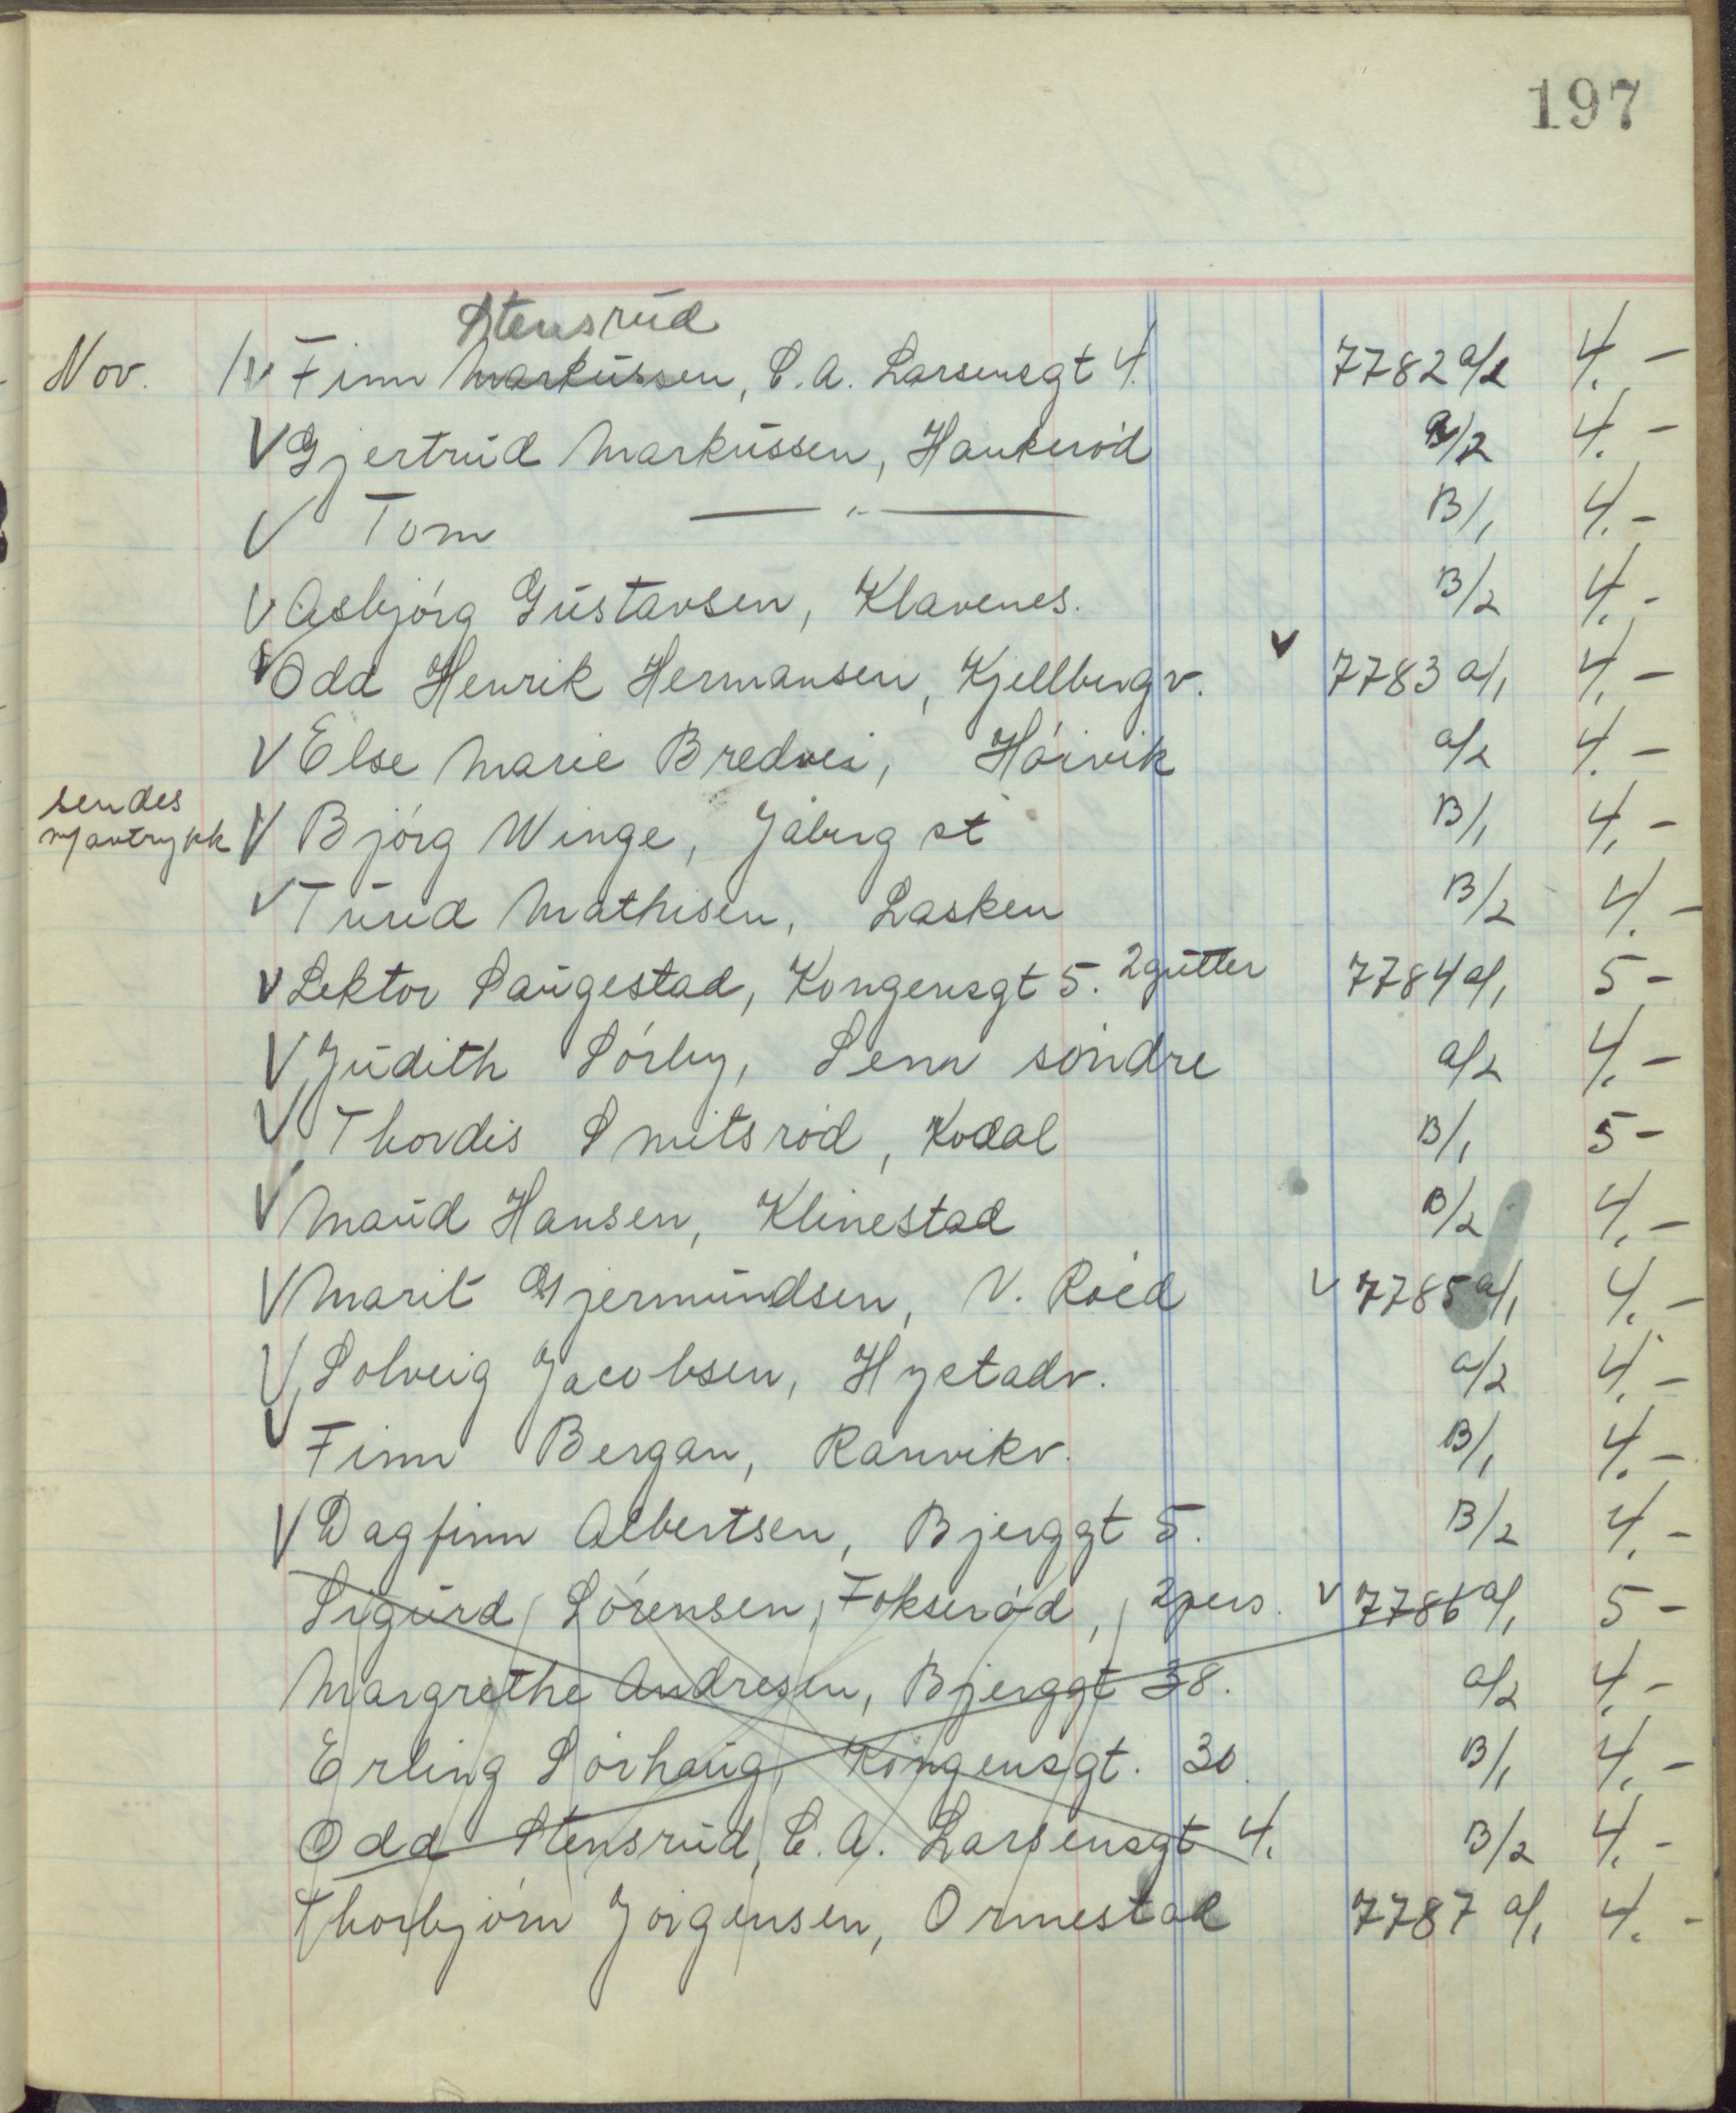 197
Stensrud
Nov. 1 V Finn Markussen, C.A. Larsensgt 4. 7782 a/2 4.-
V Gjertrud Markussen, Haukerød a/2 4.-
V Tom —〃— B/1 4.-
V Asbjørg Gustavsen, Klavenes. B/2 4.-
V Odd Henrik Hermansen, Kjellbergv. V 7783 a/1 4.-
V Else Marie Bredvei, Høivik a/2 4.-
sendes
m/avtrykk V Bjørg Winge, Jåberg st B/1 4.-
V Turid Mathisen, Lasken B/2 4.-
V Lektor Saugestad, Kongensgt 5. 2 gutter 7784 a/1 5-
V Judith Sørby, Sem søndre a/2 4.-
V Thordis Smitsrød, Kodal B/1 5-
V Maud Hansen, Klinestad B/2 4.-
V Marit Gjermundsen, N. Røed V 7785 a/1 4.-
V Solveig Jacobsen, Hystadv. a/2 4.-
V Finn Bergan, Ranvikv. B/1 4.-
V Dagfinn Albertsen, Bjerggt 5. B/2 4.-
Sigurd Sørensen, Fokserød, 2 pers. V 7786 a/1 5-
Margrethe Andresen, Bjerggt 38. a/2 4.-
Erling Sørhaug, Kongensgt. 30. B/1 4.-
Odd Stensrud, C.A. Larsensgt 4. B/2 4.-
Thorbjørn Jørgensen, Ormestad 7787 a/1 4.-